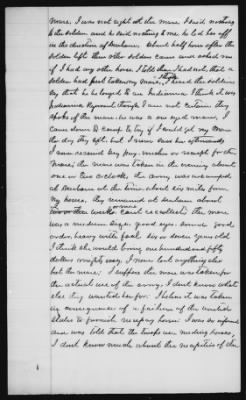 mare. I was not right at the mare I said nothing
to the soldier and he said nothing to me he led her off
in the direction of Durham. About half hour after the
soldier left three other soldiers came and asked me
if I had any other horses I told them I had not, that a
soldier had just taken my mare, I heard the soldiers
say that he belonged to an Indiana I think it was
Indiana Regiment though I am not certain they
spoke of the mare. he was a one eyed mare, I
came down to camp to try if I could get my mare
the day they left. but I never saw her afterwards
I never received any pay, voucher or receipt for the
mare, the mare was taken in the evening about
one or two o'clock, the army was encamped
at Durham at the time. about six miles from
my house, they remained at Durham about
two or three weeks can't recollect. The mare
was a medium size good eyes sound good
order, heavy with foal six or seven years old
I think she would bring one hundred and fifty
dollars mighty easy. I never lost anything else
but the mare. I suppose the mare was taken for
the actual use of the army, I dont know what
else they wanted her for. I believe it was taken
in consequence of a failure of the United
States to furnish necessary horses I was so informed
and was told that the troops were needing horses,
I dont know much about the necessities of the